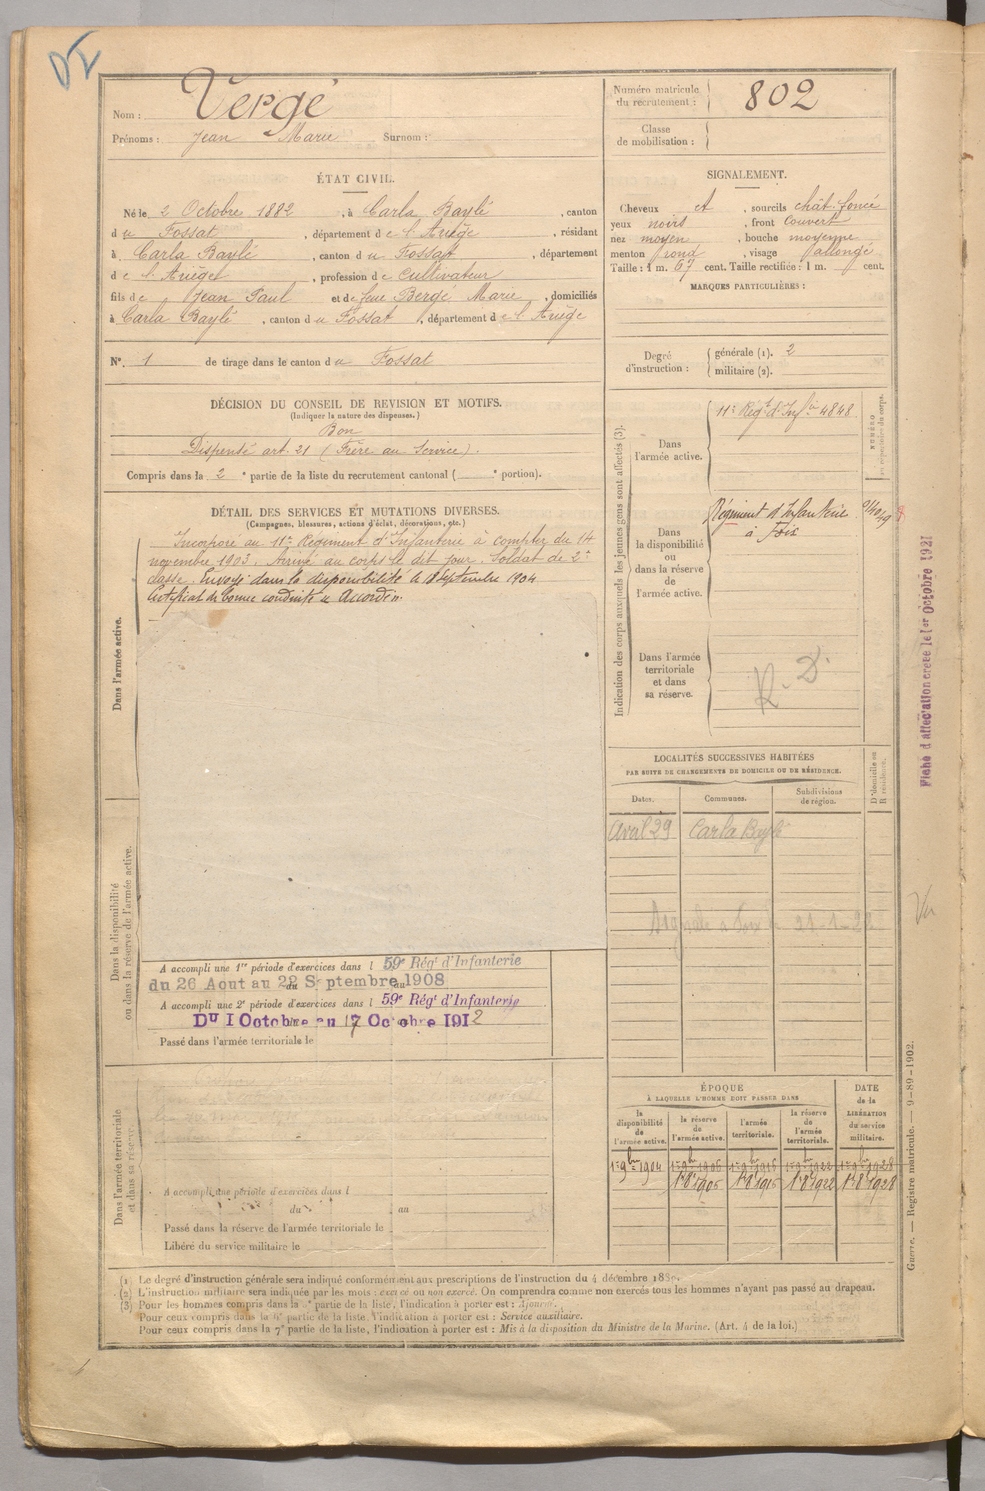 Nom : Vergé
Prénoms : Jean Marie Surnom :
Numéro matricule du recrutement : 802
Classe de mobilisation :
ÉTAT CIVIL.
Né le 2 Octobre 1882, à Carla Baylé, canton
du Fossat, département de l'Ariège, résidant
à Carla Baylé, canton du Fossat, département
de l'Ariège, profession de Cultivateur
fils de Jean Paul et de feue Bergé Marie, domiciliés
à Carla Baylé, canton du Fossat, département de l'Ariège
N° 1 de tirage dans le canton du Fossat
SIGNALEMENT.
Cheveux et, sourcils chât. foncé
yeux noirs, front couvert
nez moyen, bouche moyenne
menton rond, visage allongé
Taille : 1 m. 67 cent. Taille rectifiée : 1 m. cent.
MARQUES PARTICULIÈRES :
Degré d'instruction : générale (1). 2
militaire (2).
DÉCISION DU CONSEIL DE REVISION ET MOTIFS.
(Indiquer la nature des dispenses.)
Bon
Dispensé art. 21 (Frère au Service).
Compris dans la 2e partie de la liste du recrutement cantonal ( e portion).
DÉTAIL DES SERVICES ET MUTATIONS DIVERSES.
(Campagnes, blessures, actions d'éclat, décorations, etc.)
Incorporé au 11e Régiment d'Infanterie à compter du 14
novembre 1903. Arrivé au corps le dit jour. Soldat de 2e
classe. Envoyé dans la disponibilité le 18 Septembre 1904
Certificat de bonne conduite "Accordé".
Dans l'armée active.
Dans la disponibilité
ou dans la réserve de l'armée active.
A accompli une 1re période d'exercices dans l 59e Régt d'Infanterie
du 26 Aout au 22 Septembre 1908
A accompli une 2e période d'exercices dans l 59e Régt d'Infanterie
Du 1 Octobre au 17 Octobre 1912
Passé dans l'armée territoriale le
Dans l'armée territoriale
et dans sa réserve.
A accompli une période d'exercices dans l
du au
Passé dans la réserve de l'armée territoriale le
Libéré du service militaire le
Indication des corps auxquels les jeunes gens sont affectés (3).
NUMÉRO
au répertoire du corps.
Dans l'armée active.
11e Régt d'Infie 4848
Dans la disponibilité ou dans la réserve de l'armée active.
Régiment d'Infanterie
à Foix
Dans l'armée territoriale et dans sa réserve.
R. D.
Fiche d'affectation créée le 1er Octobre 1921
LOCALITÉS SUCCESSIVES HABITÉES
PAR SUITE DE CHANGEMENTS DE DOMICILE OU DE RÉSIDENCE.
Dates. Communes. Subdivisions de région. D domicile ou R résidence.
Avril 29 Carla Baylé
à Foix le 21-1-22
Vu
ÉPOQUE
À LAQUELLE L'HOMME DOIT PASSER DANS
DATE de la LIBÉRATION du service militaire.
la disponibilité de l'armée active. la réserve de l'armée active. l'armée territoriale. la réserve de l'armée territoriale.
1er 9bre 1904 1er 9bre 1906 1er 9bre 1916 1er 9bre 1922 1er 9bre 1928
1er 8 1906 1er 8 1916 1er 8 1922 1er 8 1928
Guerre. — Registre matricule. — 9-89-1902.
(1) Le degré d'instruction générale sera indiqué conformément aux prescriptions de l'instruction du 4 décembre 1889.
(2) L'instruction militaire sera indiquée par les mots : exercé ou non exercé. On comprendra comme non exercés tous les hommes n'ayant pas passé au drapeau.
(3) Pour les hommes compris dans la partie de la liste, l'indication à porter est : Ajourné.
Pour ceux compris dans la 4e partie de la liste, l'indication à porter est : Service auxiliaire.
Pour ceux compris dans la 7e partie de la liste, l'indication à porter est : Mis à la disposition du Ministre de la Marine. (Art. 4 de la loi.)